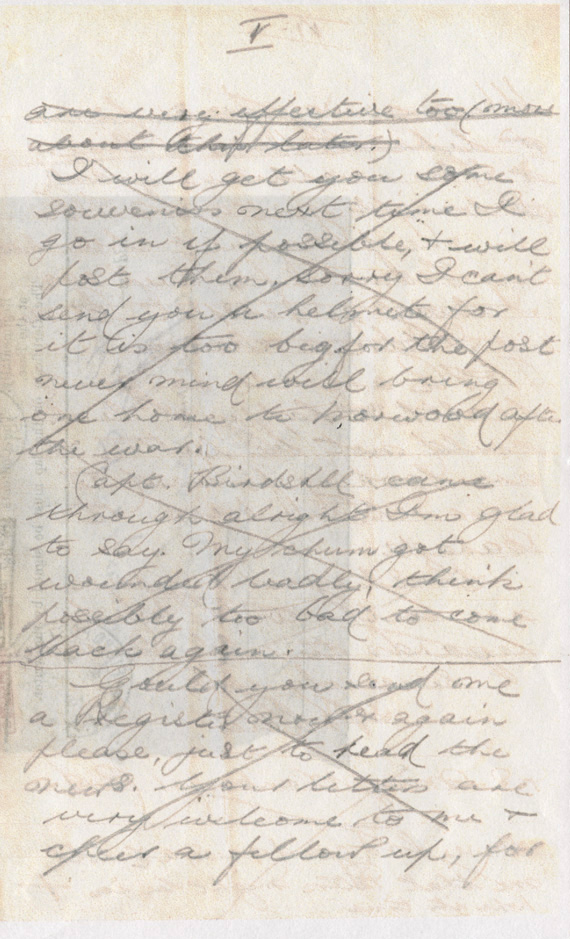 V
are very effective too (more
about this later.)
I will get you some
souvenirs next time I
go in if possible, & will
post them. Sorry I can't
send you a helmete for
it is too big for the post
never mind will bring
one home to Norwood after
the war.
Capt. Birdsell came
through alright I'm glad
to say. My chum got
wounded badly, think
possibly too bad to come
back again.
Could you send me
a Register now & again
please, just to read the
news. Your letters are
very welcome to me &
cheer a fellow up, for